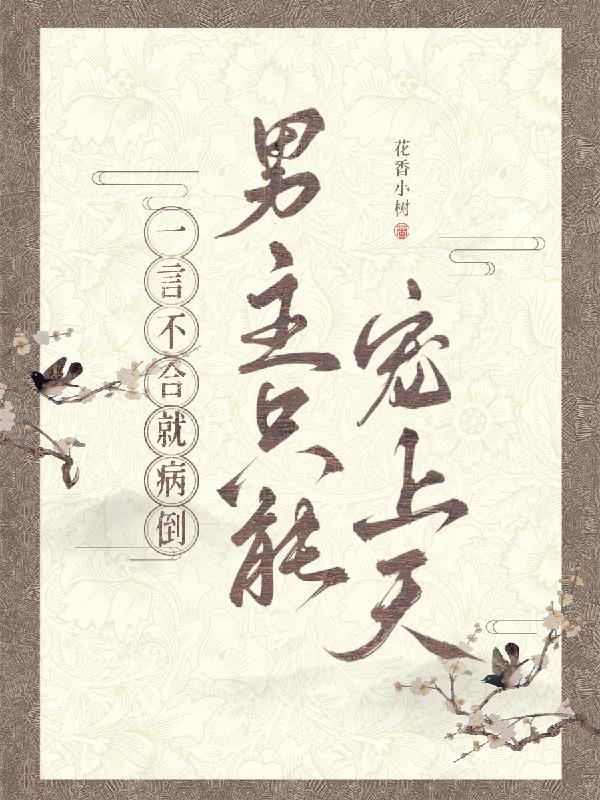 一言不合就病倒
男主只能
宠上天
花香小树